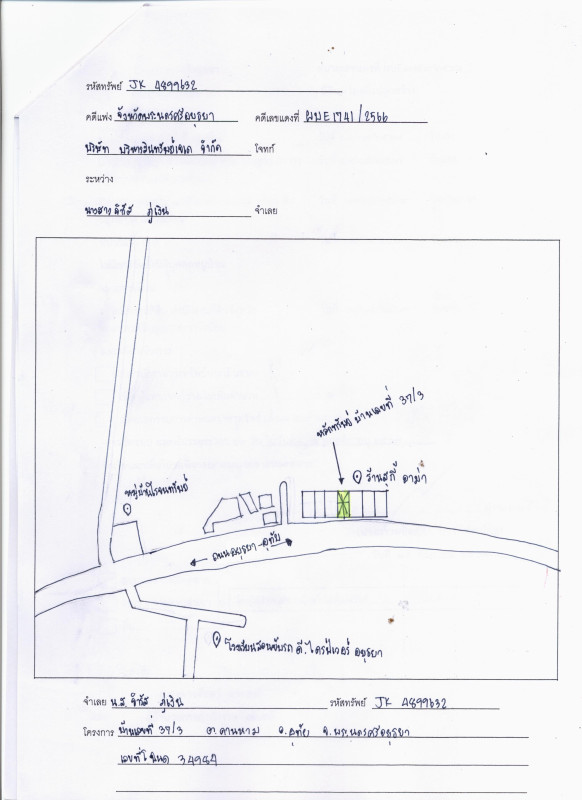 รหัสทรัพย์ JK 4899632
คดีแพ่ง จังหวัดพระนครศรีอยุธยา คดีเลขแดงที่ ผบE1741/2566
บริษัท บริหารสินทรัพย์เจเค จำกัด โจทก์
ระหว่าง
นางสาว จำเลย
หลักทรัพย์ บ้านเลขที่ 37/3
ร้านสุกี้ อาม่า
หมู่บ้านโรจนทรัพย์
ถนนอยุธยา-อุทัย
โรงเรียนสอนขับรถ ดี.ไดรฟ์เวอร์ อยุธยา
จำเลย น.ส. รหัสทรัพย์ JK 4899632
โครงการ บ้านเลขที่ 37/3 ต.คานหาม อ.อุทัย จ.พระนครศรีอยุธยา
เลขที่โฉนด 34984